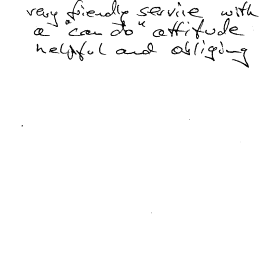 very friendly service with
a "can do" attitude
helpful and obliging